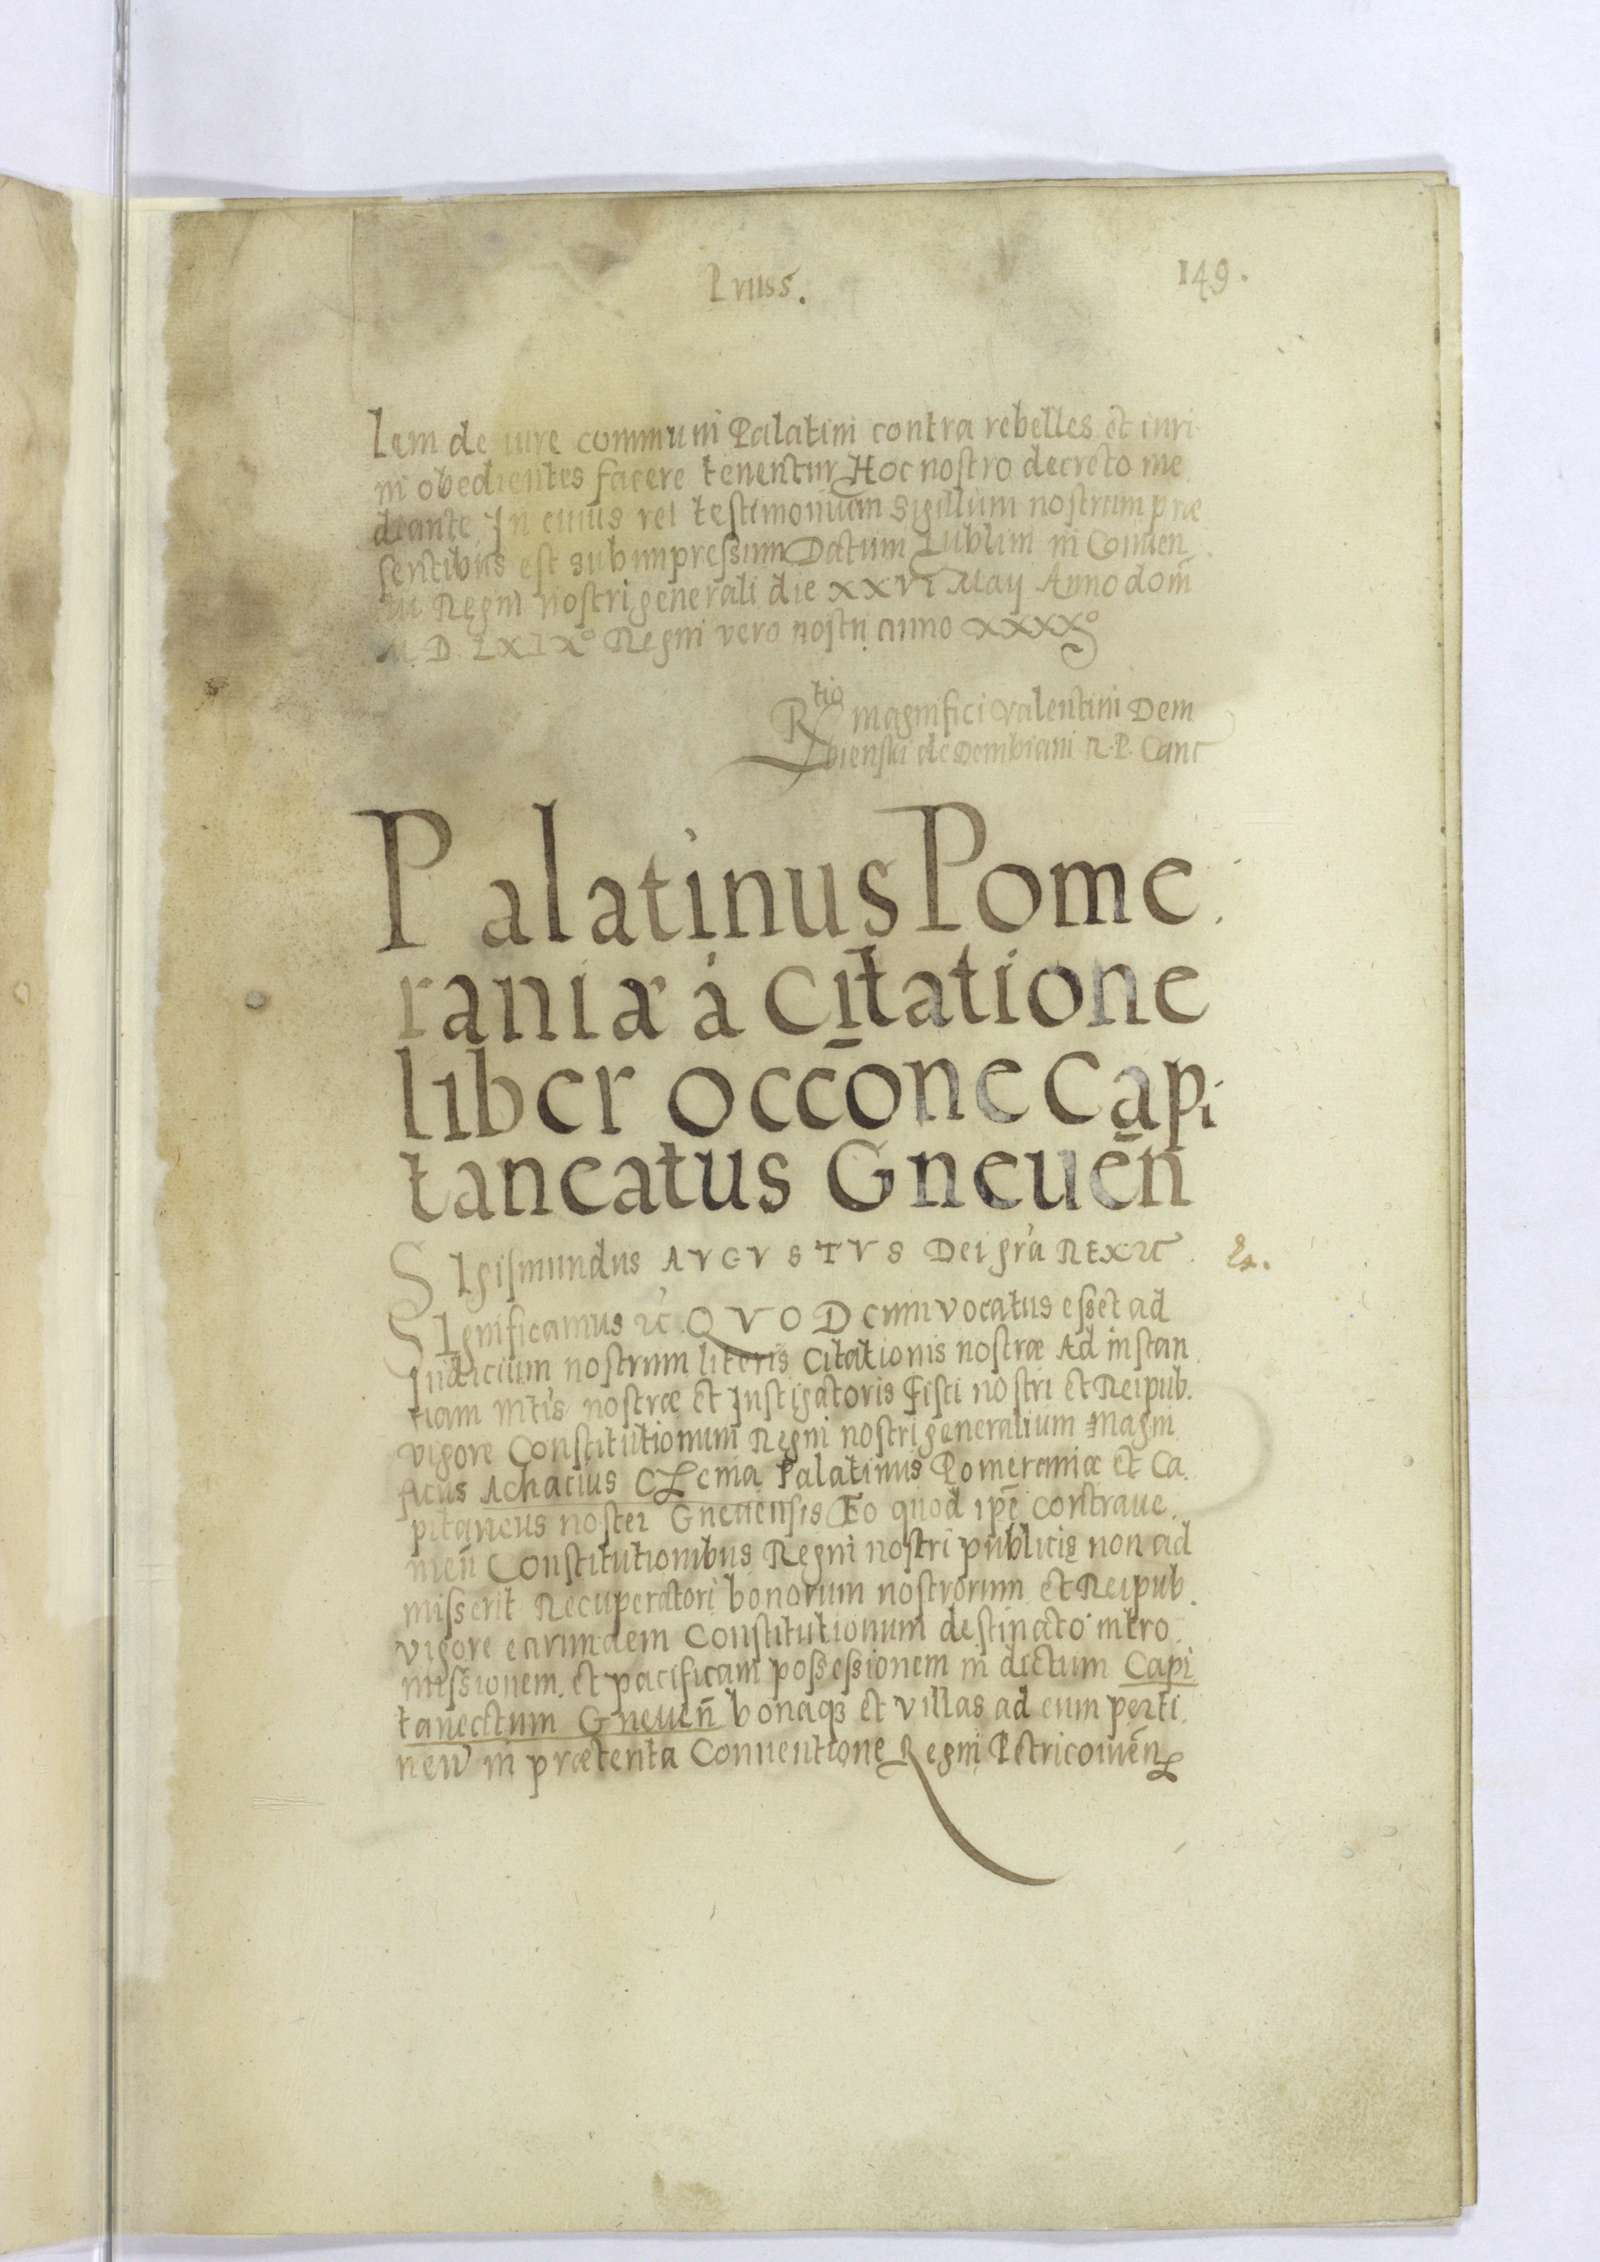 Pruss.
149.
lem de iure communi Palatini contra rebelles et iuri
inobedientes facere tenentur Hoc nostro decreto me
diante In cuius rei testimonium Sigillum nostrum præ
sentibus est subimpressum Datum Lublini in Conuen
tu Regni nostri generali die XXVI Maij Anno dom̄
M. D. LXIXº Regni vero nostri anno XXXXº
Rtio magnifici Valentini Dem
bienski de Dembiani R. P. Canc
Palatinus Pome
raniæ á Citatione
liber occ̄one Capi
taneatus Gneueñ
SIgismundus AVGVSTVS Dei gr̄a REX etc
SIgnificamus etc. QVOD cum vocatus esset ad
Iudicium nostrum literis Citationis nostræ Ad instan
tiam Mtis nostræ et Instigatoris Fisci nostri et Reipub.
vigore Constitutionum Regni nostri generalium Magni
ficus Achacius Czema Palatinus Pomeraniæ et Ca
pitaneus noster Gneuensis Eo quod ip̄e contraue
nieñ Constitutionibus Regni nostri publicis non ad
misserit Recuperatori bonorum nostrorum et Reipub.
vigore earundem Constitutionum destinato intro
missionem et pacificam possessionem in dictum Capi
taneatum Gneueñ bonaqȝ et villas ad eum perti
neñ in præterita Conuentione Regni Petricouieñ